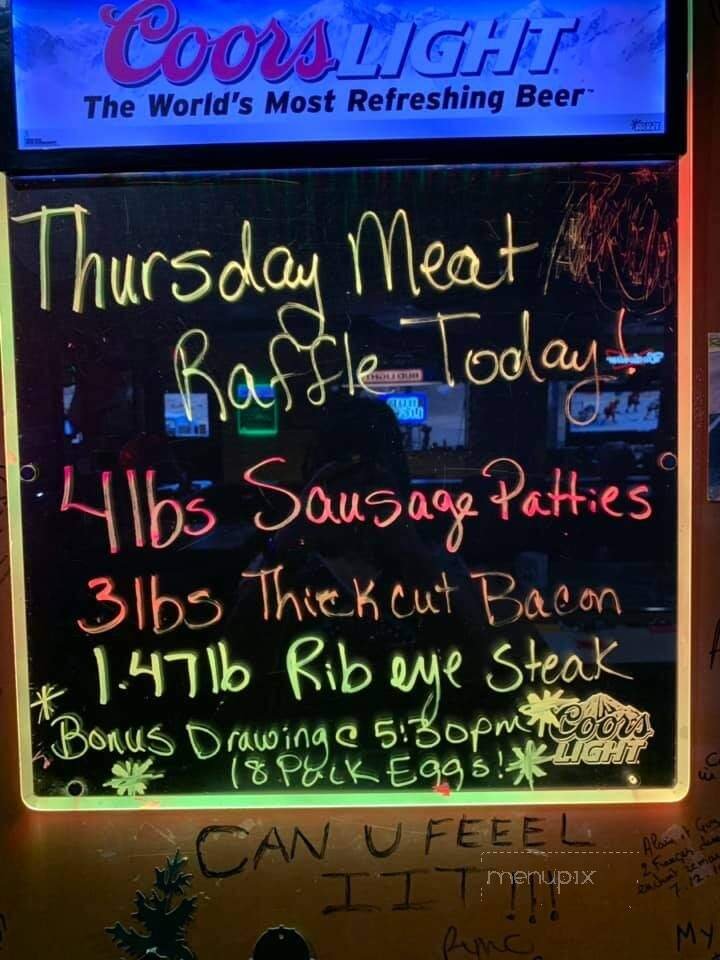 Coors LIGHT
The World's Most Refreshing Beer
Thursday Meat
Raffle Today!
4lbs Sausage Patties
3lbs Thick cut Bacon
1.47lb Rib eye Steak
Bonus Drawing @ 5:30pm
Coors LIGHT
18 Pack Eggs!
CAN U FEEEL
IIT!!!
menupix
MY